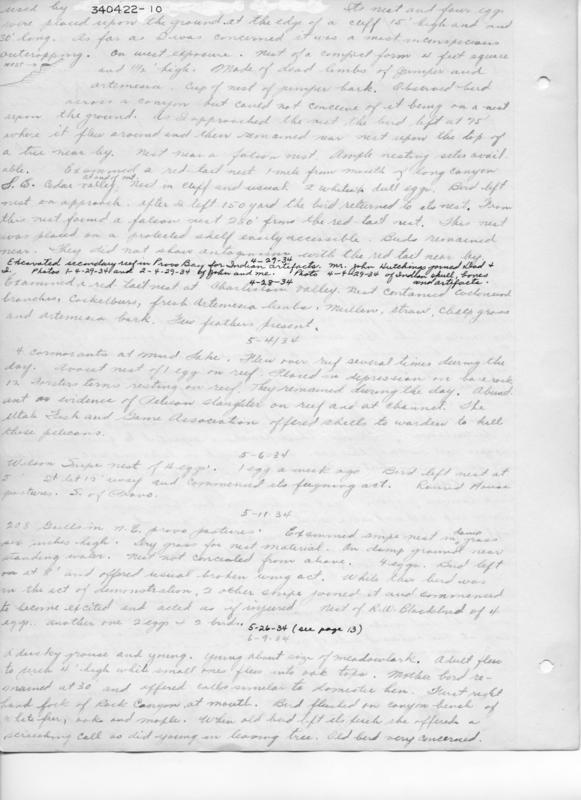 used by 340422-10 Its nest and four eggs
were placed upon the ground at the edge of a cliff 15' high and
30' long. As far as I was concerned it was a most inconspicuous
outcropping. On west exposure. Nest of a compact form 4 feet square
NEST →
and 1 1/2' high. Made of dead limbs of juniper and
artemesia. Cup of nest of juniper bark. Observed bird
across a canyon but could not conceive of it being on a nest
upon the ground. As I approached the nest the bird left at 75'
where it flew around and then remained near nest upon the top of
a tree near by. Nest near a falcon nest. Ample nesting sites avail
able. Examined a red tail nest 1 mile from mouth of long canyon
S.E. Cedar Valley. Nest in cliff and usual 2 whitish dull eggs. Bird left
nest on approach. After I left 150 yard the bird returned to its nest. From
this nest found a falcon nest 250' from the red tail nest. This nest
was placed on a protected shelf easily accessible. Birds remained
near. They did not show antagonism with the red tail near by.
4-29-34
Excavated secondary reef in Provo Bay for Indian artifacts. Mr. John Hutchings joined Dad &
I. Photos 1-4-29-34 and 2-4-29-34 by John and me. Photo 4-4-29-34 of Indian skull, bones
and artifacts.
4-28-34
Examined a red tail nest at Charleston Valley. Nest contained cottonwood
branches, cockelburs, fresh Artemesia limbs, mullein, straw, cheat grass
and artemesia bark. Few feathers present.
5-4/34
4 cormorants at Mud Lake. Flew over reef several times during the
day. Avocet nest of 1 egg on reef. Placed in depression on bare rock.
12 Forsters terns resting on reef. They remained during the day. Abund
ant evidence of Pelican slaughter on reef and at channel. The
Utah Fish and Game Association offered shells to warden to kill
these pelicans.
5-6-34
Wilson Snipe nest of 4 eggs. 1 egg a week ago. Bird left nest at
5'. It lit 12' away and commenced its feigning act. Round House
pastures. S. of Provo.
5-11-34
203 Gulls in N.E. Provo pastures. Examined snipe nest in damp grass
six inches high. Dry grass for nest material. On damp ground near
standing water. Nest not concealed from above. 4 eggs. Bird left
on at 8' and offered usual broken wing act. While this bird was
in the act of demonstration, 2 other snipe joined it and commenced
to become excited and acted as if injured. Nest of R.W. Blackbird of 4
egg. another one 2 eggs & 2 birds.
5-26-34 (see page 13)
6-9-34
A dusky grouse and young. Young about size of meadowlark. Adult flew
to perch 4' high while small ones flew into oak tops. Mother bird re-
mained at 30' and offered calls similar to domestic hen. First right
hand fork of Rock Canyon, at mouth. Bird flushed on canyon bench of
white fir, oaks and maple. When old bird left its perch she offered a
screeching call as did young in leaving tree. Old bird very concerned.